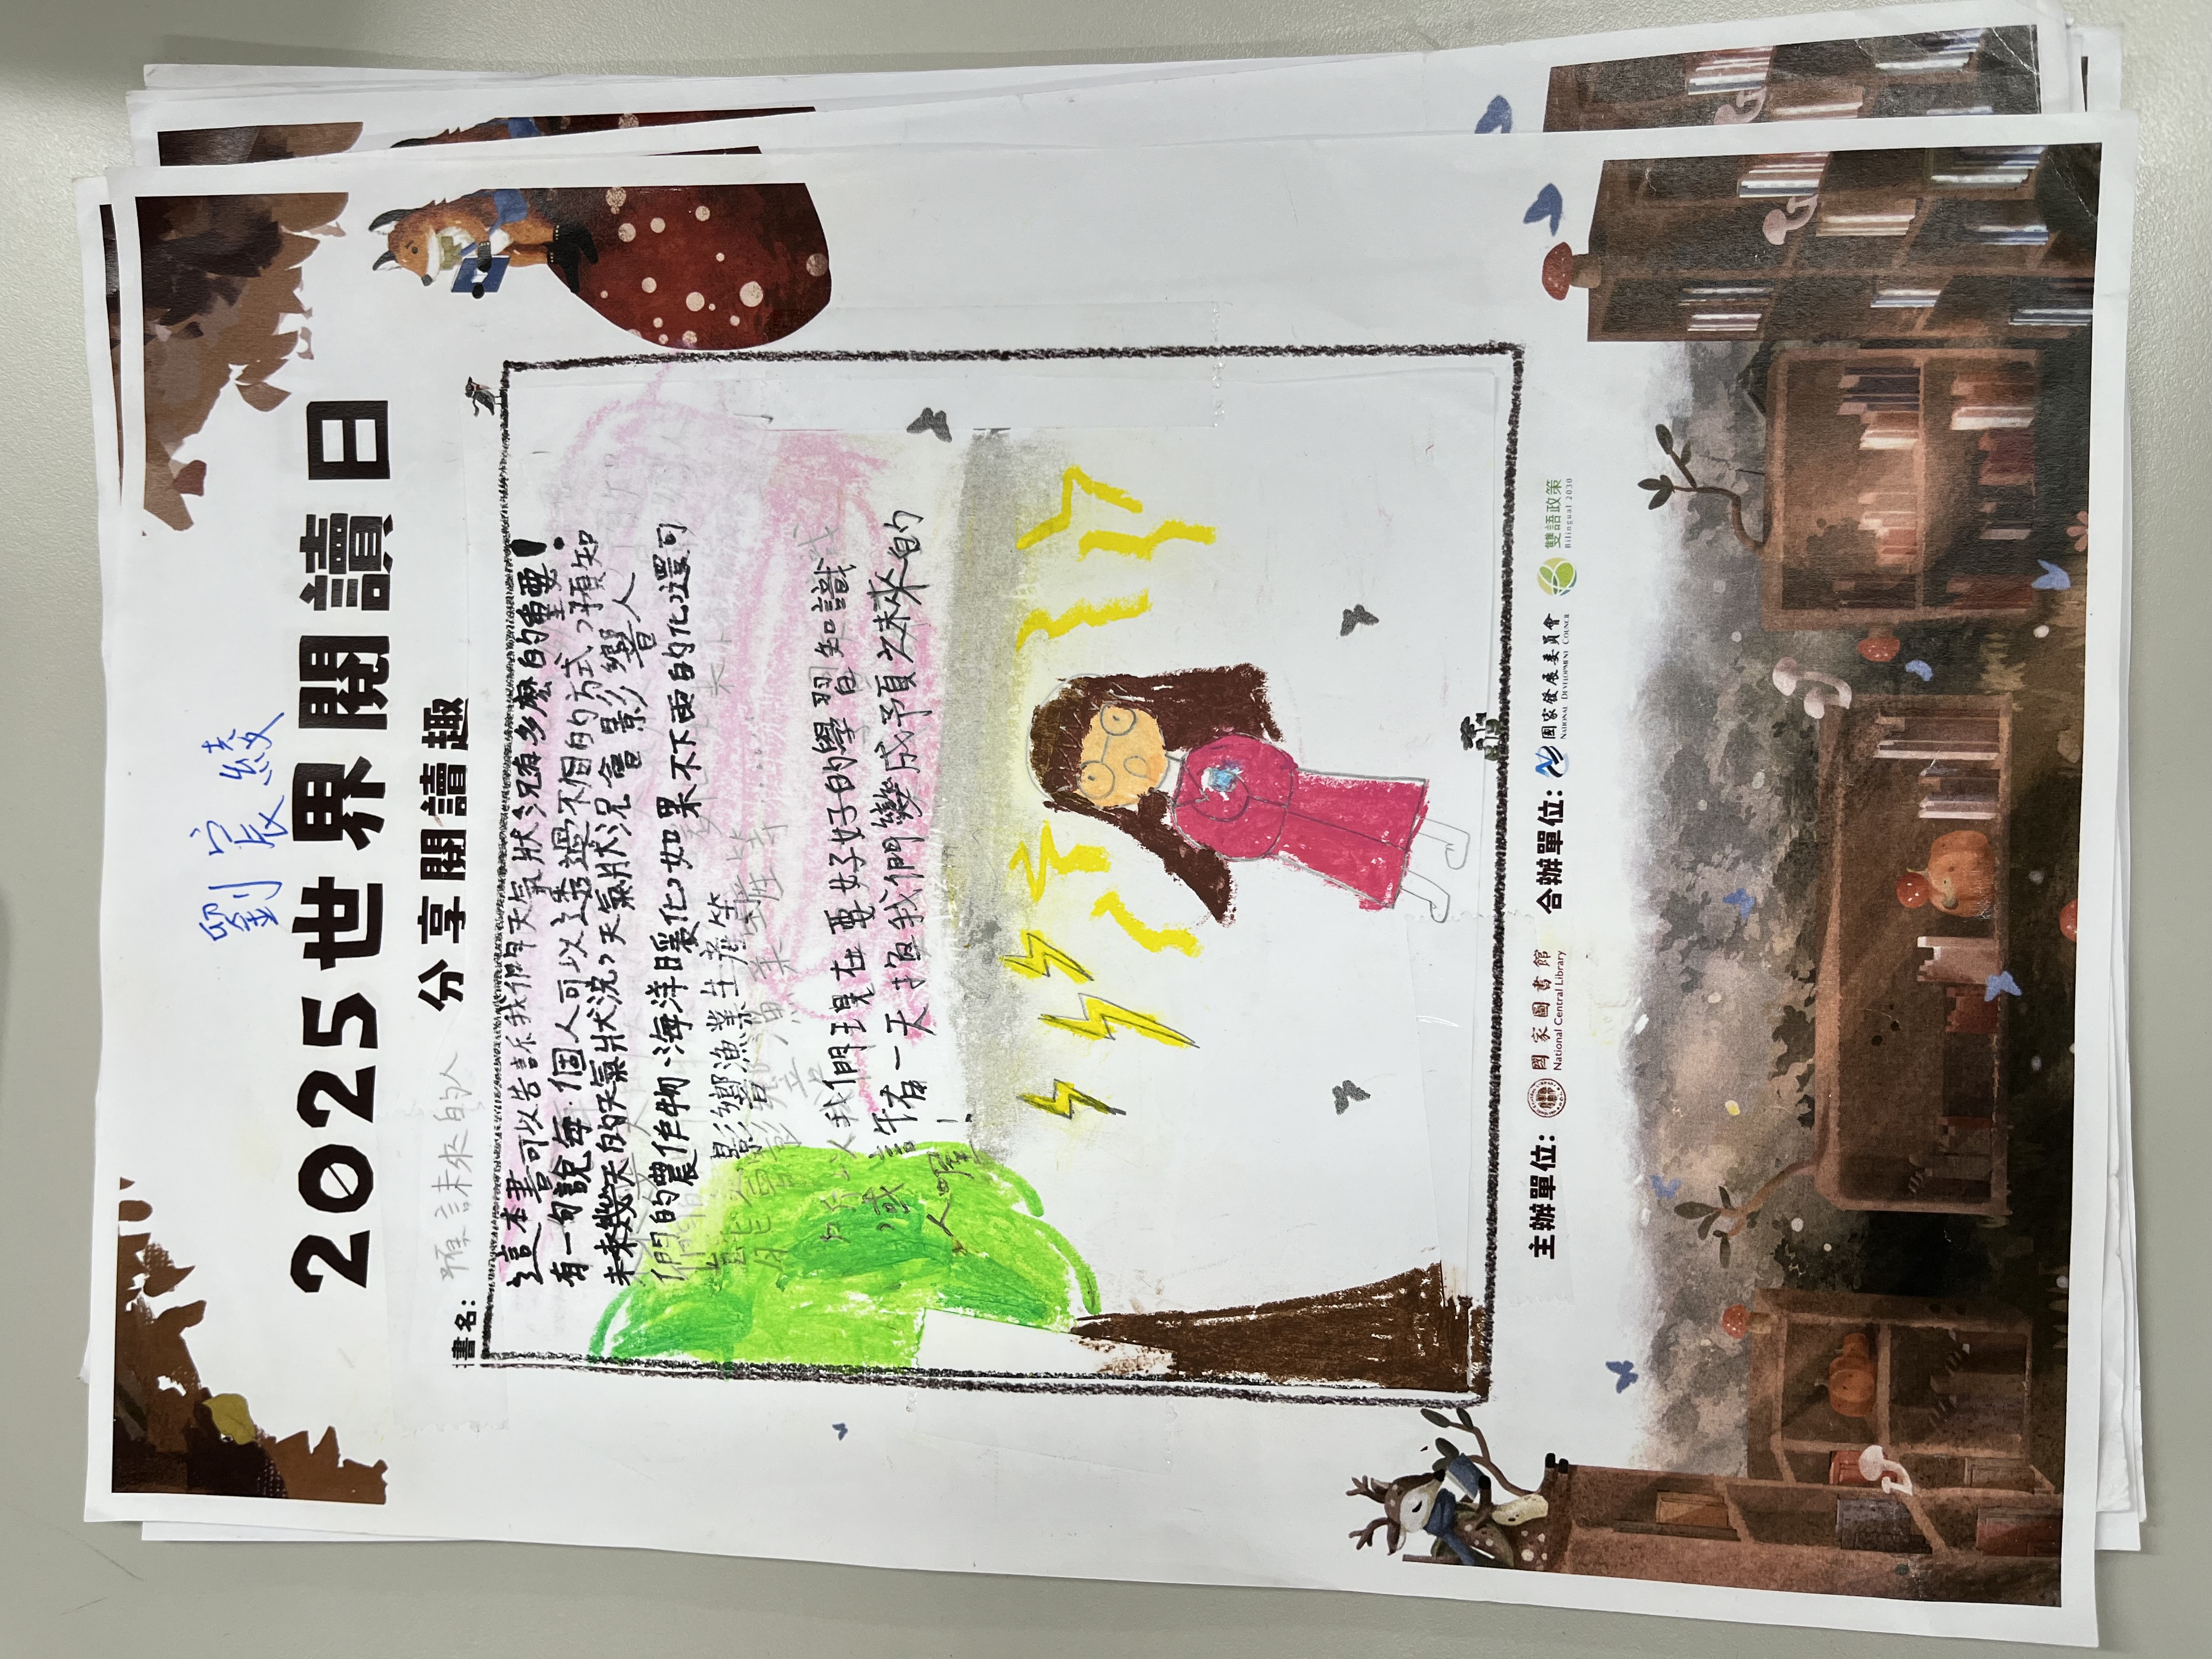 劉宸綾
2025世界閱讀日
分享閱讀趣
書名：預謀未來的人
這本書可以告訴我們天氣狀況有多麼的重要！
有一句說每個人可以透過不個的方式，預知
未來幾天的天氣狀況，天氣狀況會影響人
們的農作物、海洋日暖化，如果不下雨的化還可
能會影響漁業生產等
所以我們現在要好好的學習知識
，或許有一天換我們變成予頁之未來的
人喔！
主辦單位：
國家圖書館
National Central Library
合辦單位：
國家發展委員會
National Development Council
雙語政策
Bilingual 2030